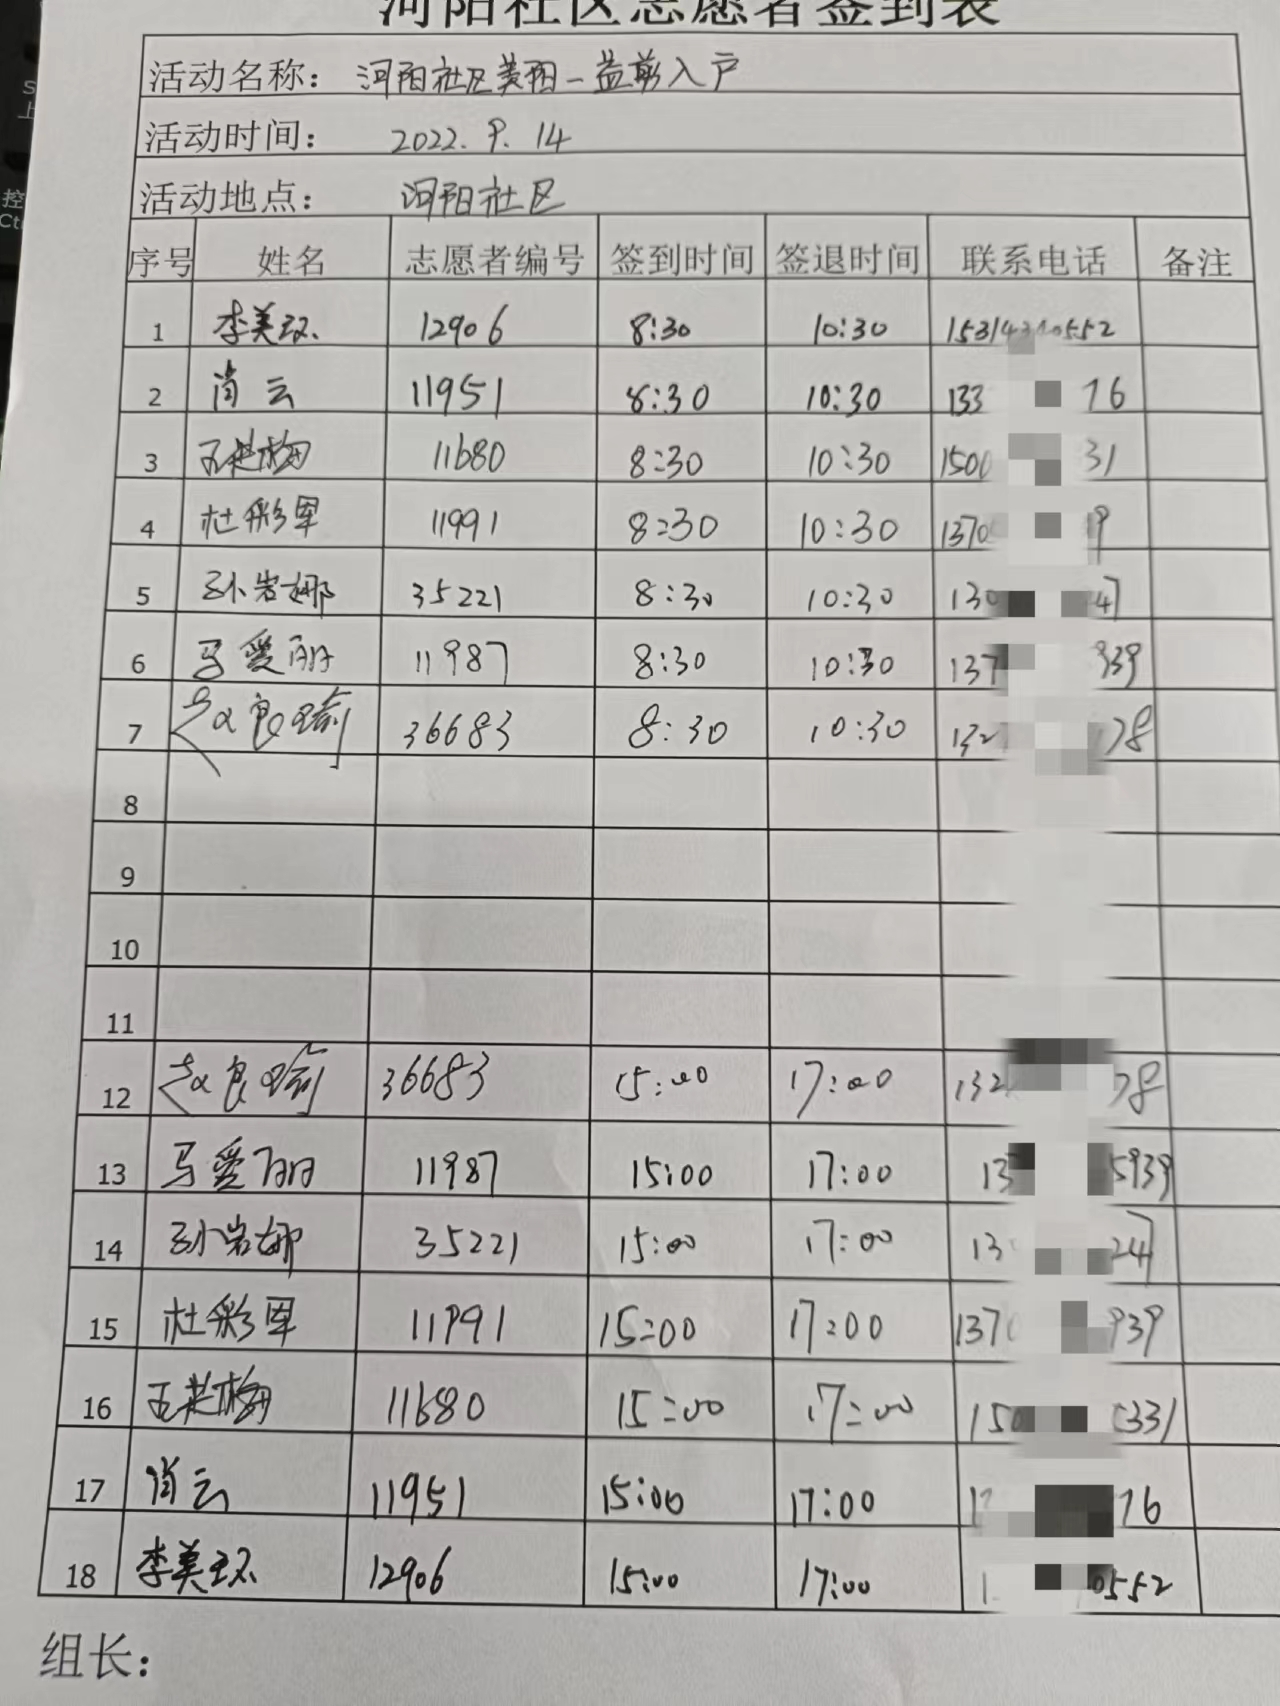 河阳社区志愿者签到表
活动名称： 河阳社区美阳一益剪入户
活动时间： 2022.9.14
活动地点： 河阳社区
序号 姓名 志愿者编号 签到时间 签退时间 联系电话 备注
1 李美环 12906 8:30 10:30 0552
2 肖云 11951 8:30 10:30 133 76
3 王赵梅 11680 8:30 10:30 1500 31
4 杜彩军 11991 8:30 10:30 1370 9
5 孙岩娜 35221 8:30 10:30 130 47
6 马爱丽 11987 8:30 10:30 137 939
7 赵良瑜 36683 8:30 10:30 132 78
8
9
10
11
12 赵良瑜 36683 15:00 17:00 132 78
13 马爱丽 11987 15:00 17:00 13 5939
14 孙岩娜 35221 15:00 17:00 13 247
15 杜彩军 11991 15:00 17:00 1370 939
16 王赵梅 11680 15:00 17:00 150 331
17 肖云 11951 15:00 17:00 1 76
18 李美环 12906 15:00 17:00 1 0552
组长：